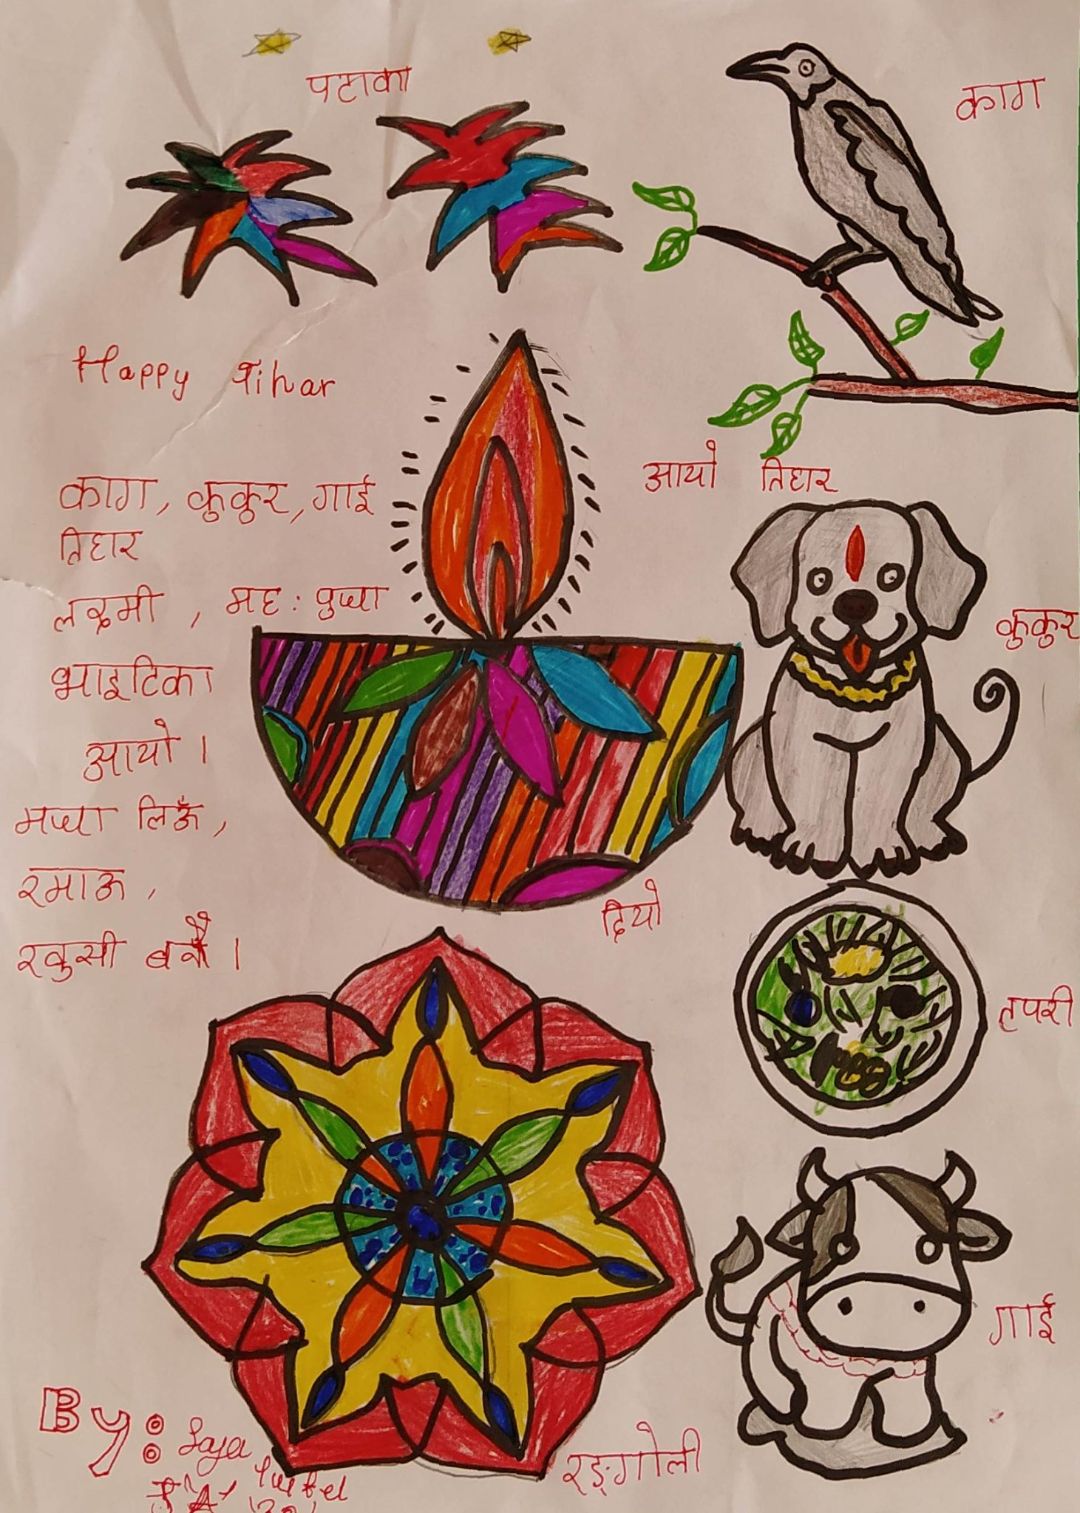 पटाका
काग
Happy Tihar
आयो तिहार
काग, कुकुर, गाई
तिहार
लक्ष्मी , मह: पुजा
भाइटिका
आयो ।
मज्जा लिऊँ,
रमाऊ ,
खुसी बनौँ ।
कुकुर
दियो
तपरी
गाई
रङ्गोली
By: